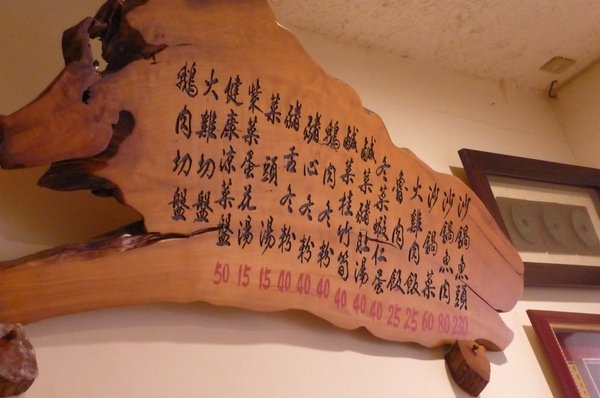 沙鍋魚頭 230
沙鍋魚肉 80
沙鍋菜 60
火雞肉飯 25
魯肉飯 25
冬菜蝦仁蛋 40
鹹菜豬肚湯 40
鹹菜桂竹筍 40
鵝肉冬粉 40
豬心冬粉 40
豬舌冬粉 40
菜頭湯 15
紫菜蛋花湯 15
健康涼菜盤 50
火雞切盤
鵝肉切盤